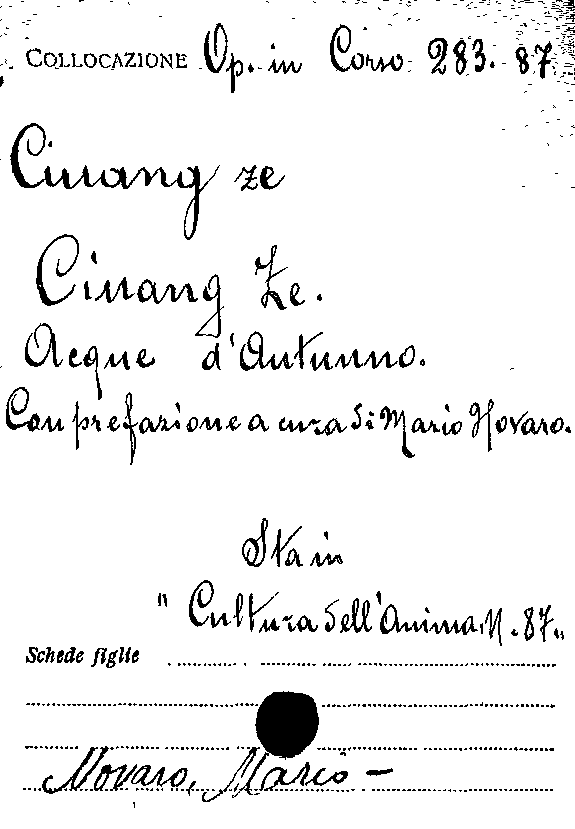 COLLOCAZIONE Op. in Corso 283. 87
Ciuang ze
Ciuang Ze.
Acque d'Autunno.
Con prefazione a cura di Mario Novaro.
Sta in
"Cultura dell'Anima N. 87"
Schede figlie
Novaro, Mario -